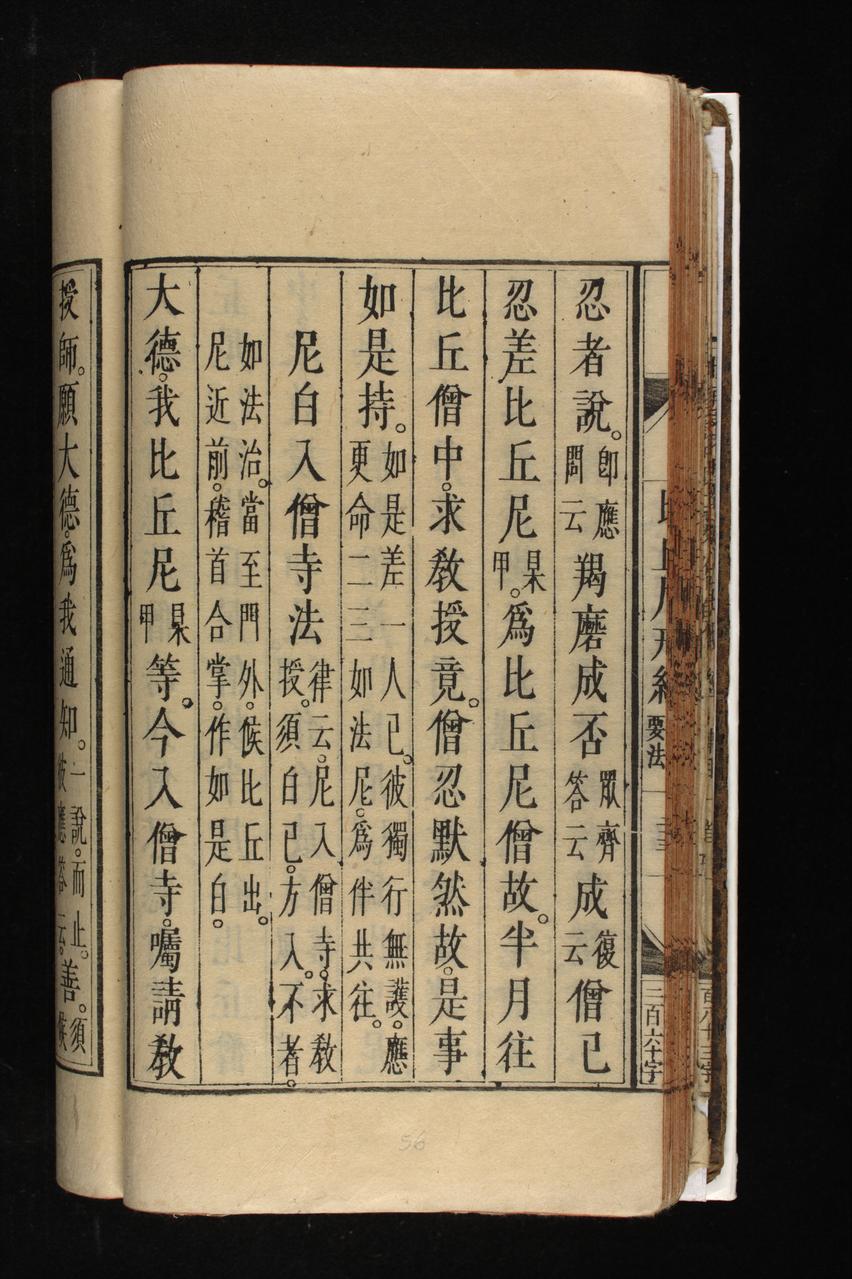 忍者說。即應問云羯磨成否眾齊答云成復云僧已
忍差比丘尼某甲。為比丘尼僧故。半月往
比丘僧中。求教授竟。僧忍默然故。是事
如是持。如是差一人已。彼獨行無護。應更命二三如法尼。為伴共往。
尼白入僧寺法律云。尼入僧寺。求教授。須白已。方入。不者。
如法治。當至門外。候比丘出。尼近前。稽首合掌。作如是白。
大德。我比丘尼某甲等。今入僧寺。囑請教
授師。願大德。為我通知。一說。而止。彼應答云。善。須候
要法
三百六十字